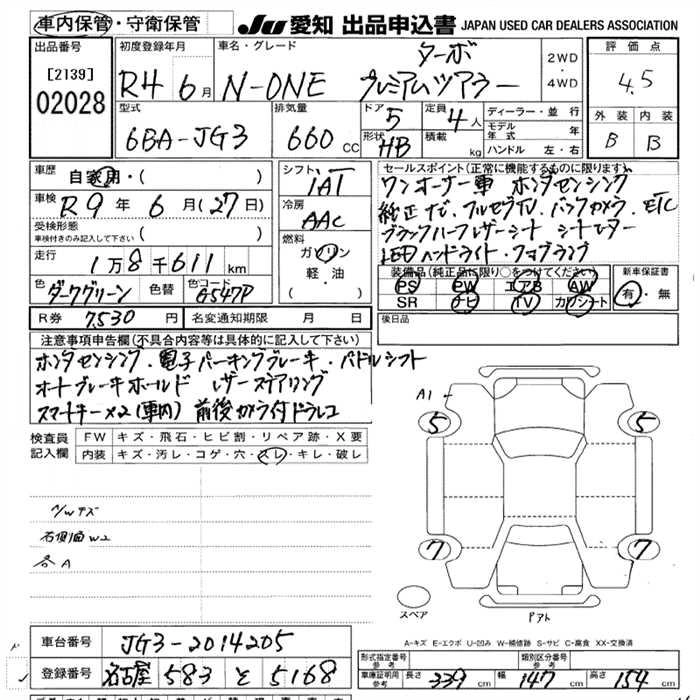 車内保管・守衛保管 JU 愛知 出品申込書 JAPAN USED CAR DEALERS ASSOCIATION
出品番号 初度登録年月 車名・グレード 評価点
[2139] ターボ 2WD
02028 R4 6月 N-ONE プレミアムツアラー ・4WD 4.5
型式 排気量 ドア 5 定員 4人 ディーラー・並行 外装 内装
6BA-JG3 660cc 形状 HB 積載 kg モデル年式 年 B B
ハンドル 左・右
車歴 自家用・( ) シフト IAT セールスポイント(正常に機能するものに限ります)
車検 R9年 6月(27日) 冷房 AAC ワンオーナー車 ホンダセンシング
受検形態 純正ナビ.フルセグTV.バックカメラ.ETC
車検付きのみ記入して下さい ( ) 燃料 ブラックハーフレザーシート シートヒーター
走行 1万8千611km ガソリン LEDヘッドライト・フォグランプ
軽・油 装備品(純正品に限り○をつけてください) 新車保証書
色 ダークグリーン 色替 色コード G547P ・( ) PS PW エアB AW 有・無
SR ナビ TV カワシート
R券 7,530円 名変通知期限 月 日 後日品
注意事項申告欄(不具合内容等は具体的に記入して下さい)
ホンダセンシング.電子パーキングブレーキ.パドルシフト
オートブレーキホールド レザーステアリング
スマートキー×2(車内) 前後カメラ付ドラレコ
検査員記入欄 FW キズ・飛石・ヒビ割・リペア跡・X要
内装 キズ・汚レ・コゲ・穴・スレ・キレ・破レ
A1
5 5
A/Wキズ
右側面W2
各A
7 7
スペア
Pアト
A-キズ E-エクボ U-凹み W-補修跡 S-サビ C-腐食 XX-交換済
車台番号 JG3-2014205
形式指定番号 参考 類別区分番号 参考
登録番号 名古屋 583 と 5168
車庫証明用参考 長さ 339cm 幅 147cm 高さ 154cm